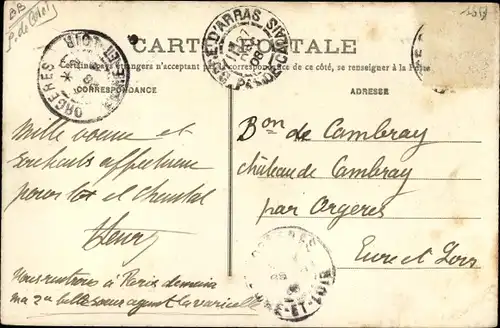 CARTE POSTALE
Certains pays étrangers n'acceptant pas la correspondance de ce côté, se renseigner à la Poste
CORRESPONDANCE
ADRESSE
GARE D'ARRAS
PAS-DE-CALAIS
ORGERES
EURE-ET-LOIR
Mille voeux et
souhaits affectueux
pour toi et Chantal
Henry
Nous rentrons à Paris demain
ma 2e belle soeur ayant la varicelle
Bon de Cambray
château de Cambray
par Orgeres
Eure et Loir
EURE-ET-LOIR